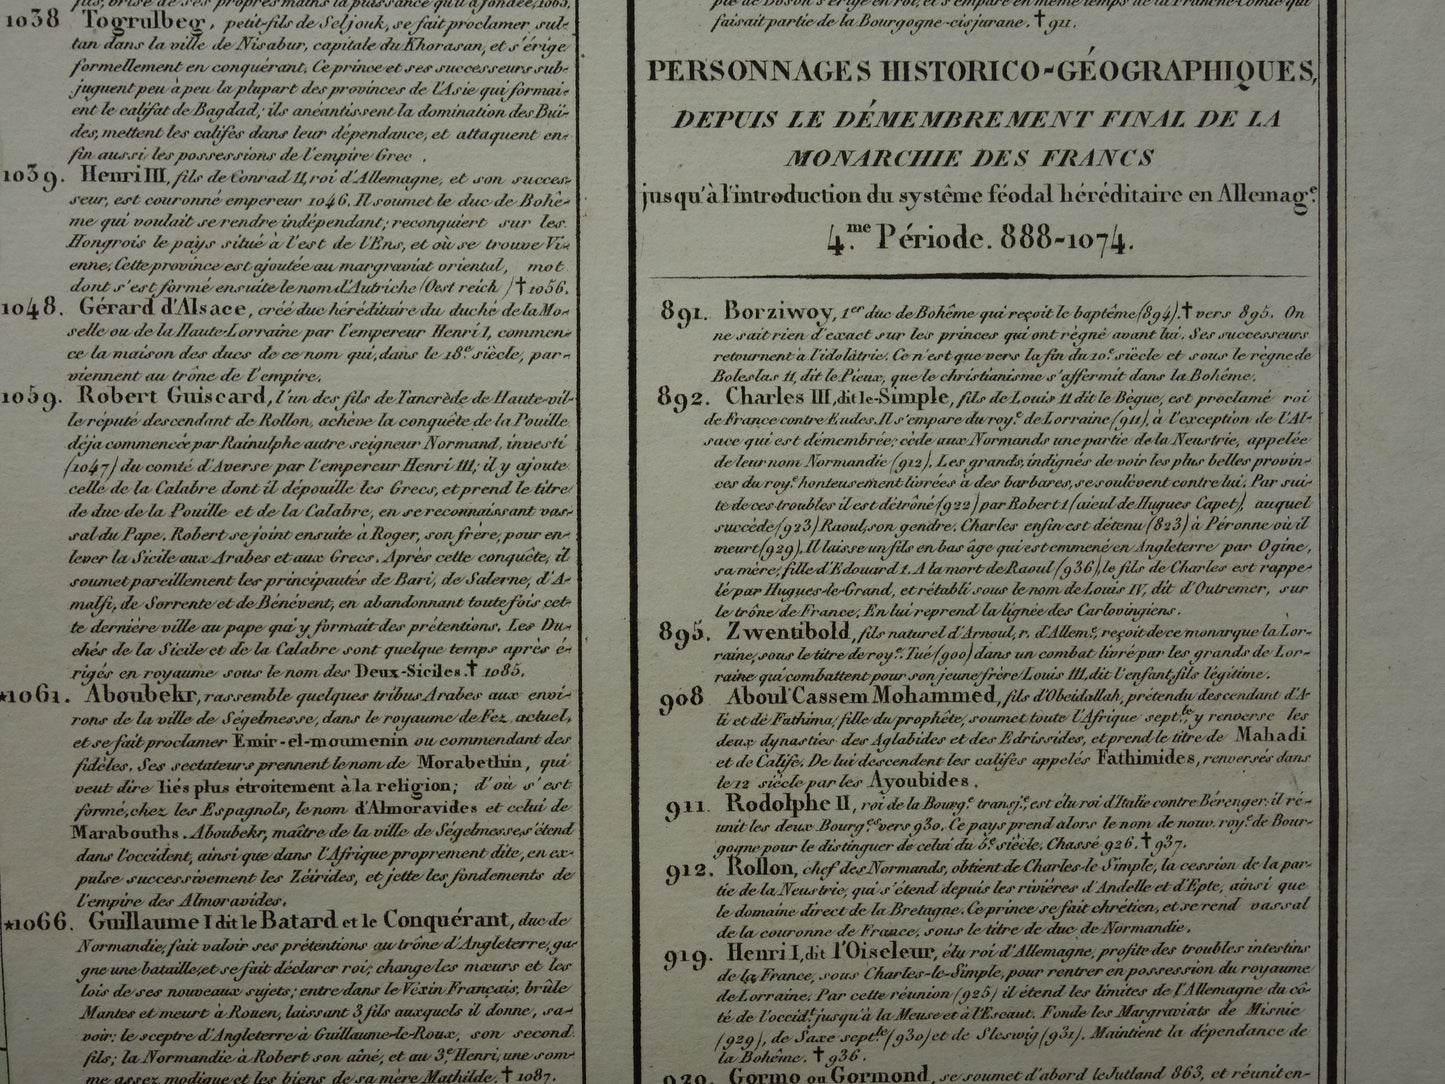 fils, brise de ses propres mains la puissance qu'il a fondée, 1063,
1038 Togrulbeg, petit-fils de Seljouk, se fait proclamer sul-
tan dans la ville de Nisabur, capitale du Khorasan, et s'érige
formellement en conquérant. Ce prince et ses successeurs sub-
juguent peu à peu la plupart des provinces de l'Asie qui formai-
ent le califat de Bagdad; ils anéantissent la domination des Buï-
des, mettent les califes dans leur dépendance, et attaquent en-
fin aussi les possessions de l'empire Grec .
1039. Henri III, fils de Conrad II, roi d'Allemagne, et son succes-
seur, est couronné empereur 1046. Il soumet le duc de Bohê-
me qui voulait se rendre indépendant; reconquiert sur les
Hongrois le pays situé à l'est de l'Ens, et où se trouve Vi-
enne. Cette province est ajoutée au margraviat oriental, mot
dont s'est formé ensuite le nom d'Autriche (Oest reich ) † 1056.
1048. Gérard d'Alsace, créé duc héréditaire du duché de la Mo-
selle ou de la Haute-Lorraine par l'empereur Henri I, commen-
ce la maison des ducs de ce nom qui, dans le 18e siècle, par-
viennent au trône de l'empire.
1059. Robert Guiscard, l'un des fils de Tancrède de Haute-vil-
le réputé descendant de Rollon, achève la conquête de la Pouille
déja commencée par Rainulphe autre seigneur Normand, investi
(1047) du comté d'Averse par l'empereur Henri III; il y ajoute
celle de la Calabre dont il dépouille les Grecs, et prend le titre
de duc de la Pouille et de la Calabre, en se reconnaissant vas-
sal du Pape. Robert se joint ensuite à Roger, son frère, pour en-
lever la Sicile aux Arabes et aux Grecs. Après cette conquête, il
soumet pareillement les principautés de Bari, de Salerne, d'A-
malfi, de Sorrente et de Bénévent, en abandonnant toutefois cet-
te dernière ville au pape qui y formait des prétentions. Les Du-
chés de la Sicile et de la Calabre sont quelque temps après é-
rigés en royaume sous le nom des Deux-Siciles. † 1085.
★1061. Aboubekr, rassemble quelques tribus Arabes aux envi-
rons de la ville de Ségelmesse, dans le royaume de Fez actuel,
et se fait proclamer Emir-el-moumenin ou commendant des
fidèles. Ses sectateurs prennent le nom de Morabethin, qui
veut dire liés plus étroitement à la religion; d'où s'est
formé, chez les Espagnols, le nom d'Almoravides et celui de
Marabouths. Aboubekr, maître de la ville de Ségelmesse, s'étend
dans l'occident, ainsi que dans l'Afrique proprement dite, en ex-
pulse successivement les Zéirides, et jette les fondements de
l'empire des Almoravides.
★1066. Guillaume I dit le Batard et le Conquérant, duc de
Normandie, fait valoir ses prétentions au trône d'Angleterre, ga-
gne une bataille, et se fait déclarer roi; change les mœurs et les
lois de ses nouveaux sujets; entre dans le Véxin Français, brûle
Mantes et meurt à Rouen, laissant 3 fils auxquels il donne, sa-
voir: le sceptre d'Angleterre à Guillaume-le-Roux, son second
fils; la Normandie à Robert son aîné, et au 3e Henri, une som-
me assez modique et les biens de sa mère Mathilde. † 1087.
pie de Boson s'érige en roi, et s'empare en même temps de la Franche-Comté qui
faisait partie de la Bourgogne-cisjurane. † 911.
PERSONNAGES HISTORICO-GÉOGRAPHIQUES,
DEPUIS LE DÉMEMBREMENT FINAL DE LA
MONARCHIE DES FRANCS
jusqu'à l'introduction du système féodal héréditaire en Allemag.e
4.me Période. 888-1074.
891. Borziwoy, 1er duc de Bohême qui reçoit le baptême (894). † vers 895. On
ne sait rien d'exact sur les princes qui ont régné avant lui. Ses successeurs
retournent à l'idolâtrie. Ce n'est que vers la fin du 10e siècle et sous le règne de
Boleslas II, dit le Pieux, que le christianisme s'affermit dans la Bohême.
892. Charles III, dit le-Simple, fils de Louis II dit le Bègue, est proclamé roi
de France contre Eudes. Il s'empare du roy.e de Lorraine (911), à l'exception de l'Al-
sace qui est démembrée; cède aux Normands une partie de la Neustrie, appelée
de leur nom Normandie (912). Les grands, indignés de voir les plus belles provin-
ces du roy.e honteusement livrées à des barbares, se soulèvent contre lui. Par sui-
te de ces troubles il est détrôné (922) par Robert I (aïeul de Hugues Capet), auquel
succède (923) Raoul, son gendre. Charles enfin est détenu (823) à Péronne où il
meurt (929). Il laisse un fils en bas âge qui est emmené en Angleterre par Ogine,
sa mère, fille d'Edouard I. A la mort de Raoul (936), le fils de Charles est rappe-
lé par Hugues-le-Grand, et rétabli sous le nom de Louis IV, dit d'Outremer, sur
le trône de France. En lui reprend la lignée des Carlovingiens.
895. Zwentibold, fils naturel d'Arnoul, r. d'Allem.e, reçoit de ce monarque la Lor-
raine, sous le titre de roy.e. Tué (900) dans un combat livré par les grands de Lor-
raine qui combattent pour son jeune frère Louis III, dit l'enfant, fils légitime.
908 Aboul'Cassem Mohammed, fils d'Obeidallah, prétendu descendant d'A-
li et de Fathima, fille du prophète, soumet toute l'Afrique sept.le, y renverse les
deux dynasties des Aglabides et des Edrissides, et prend le titre de Mahadi
et de Calife. De lui descendent les califes appelés Fathimides, renversés dans
le 12 siècle par les Ayoubides.
911. Rodolphe II, roi de la Bourg.e transj.e, est élu roi d'Italie contre Bérenger: il ré-
unit les deux Bourg.es vers 930. Ce pays prend alors le nom de nouv. roy.e de Bour-
gogne pour le distinguer de celui du 5e siècle. Chassé 926. † 937.
912. Rollon, chef des Normands, obtient de Charles-le Simple, la cession de la par-
tie de la Neustrie, qui s'étend depuis les rivières d'Andelle et d'Epte, ainsi que
le domaine direct de la Bretagne. Ce prince se fait chrétien, et se rend vassal
de la couronne de France, sous le titre de duc de Normandie.
919. Henri I, dit l'Oiseleur, élu roi d'Allemagne, profite des troubles intestins
de la France, sous Charles-le-Simple, pour rentrer en possession du royaume
de Lorraine. Par cette réunion (925) il étend les limites de l'Allemagne du cô-
té de l'occid.t jusqu'à la Meuse et à l'Escaut. Fonde les Margraviats de Misnie
(929), de Saxe sept.le (930) et de Sleswig (931). Maintient la dépendance de
la Bohême. † 936.
920. Gormo ou Gormond, se soumet d'abord le Jutland 863, et réunit en-